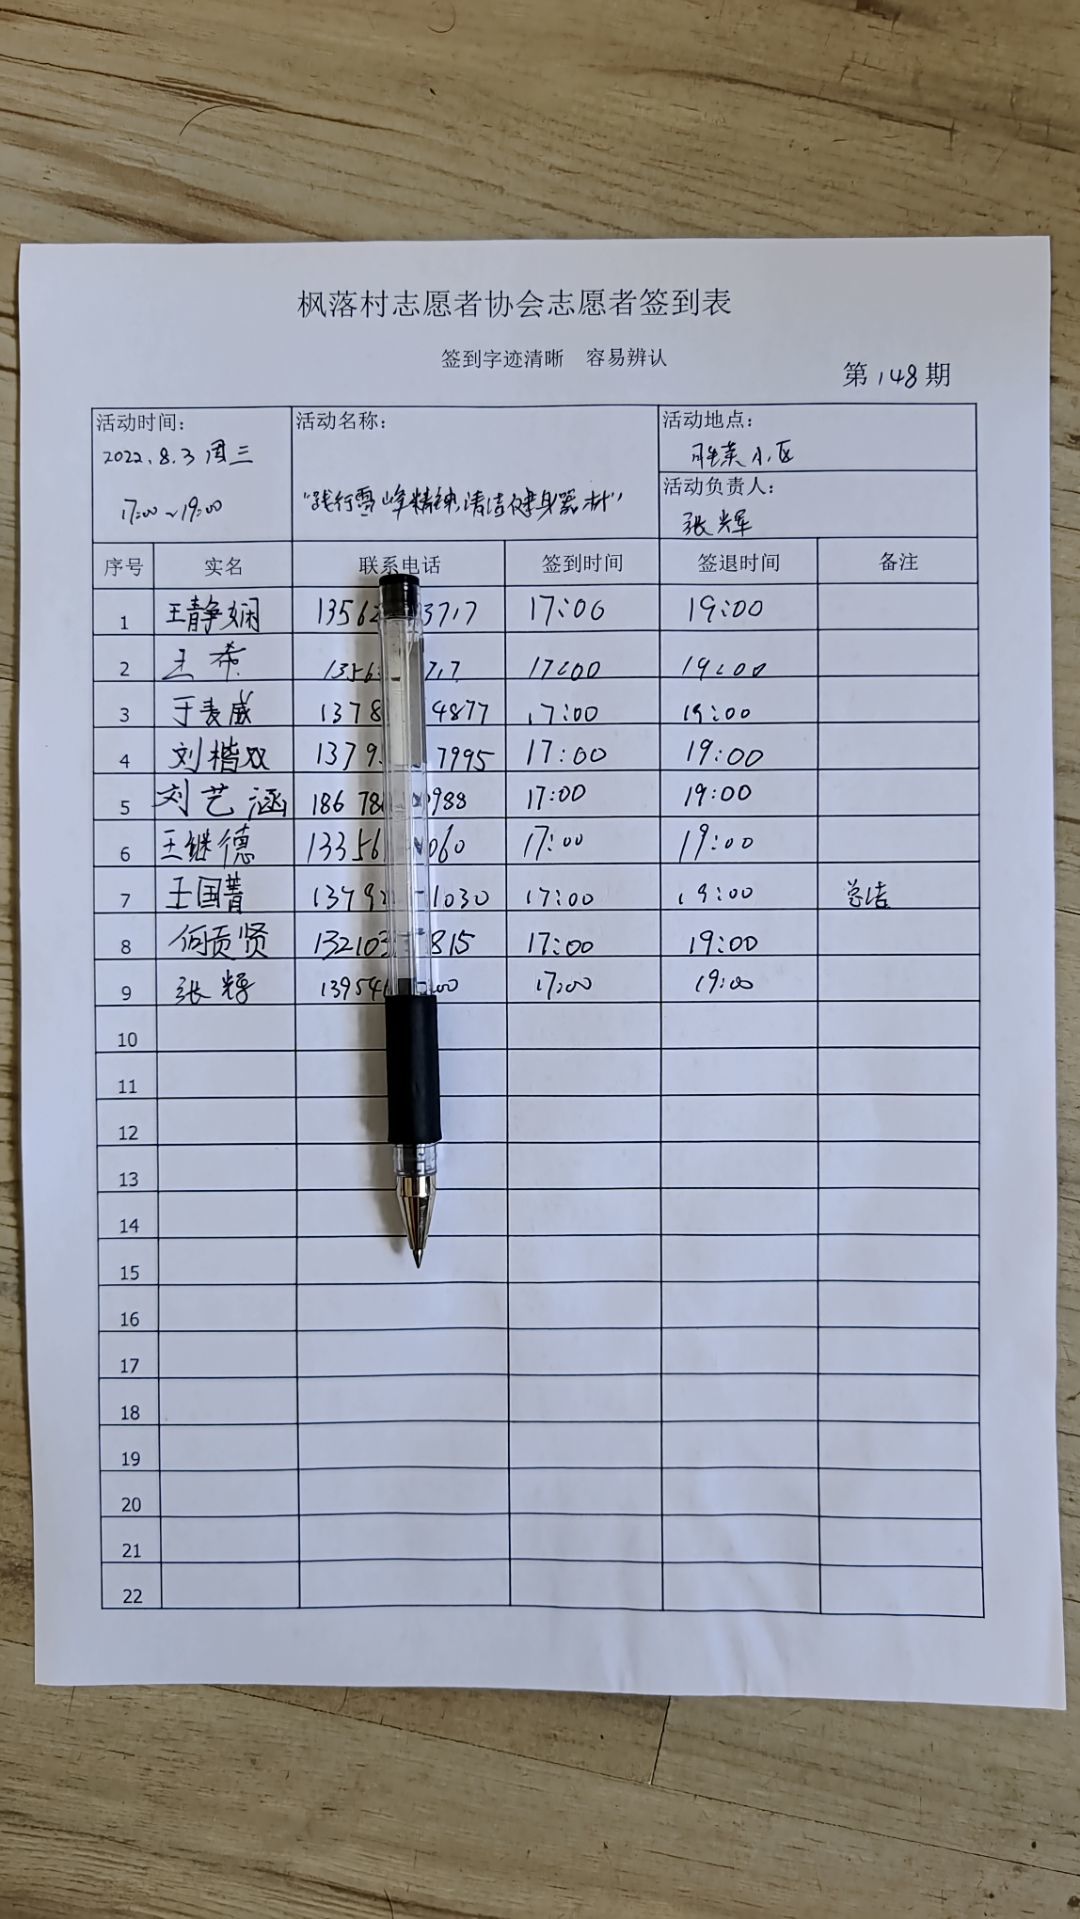 枫落村志愿者协会志愿者签到表
签到字迹清晰 容易辨认
第148期
活动时间: 活动名称: 活动地点:
2022.8.3 周三 胜英小区
活动负责人:
17:00~19:00 "践行雪峰精神,清洁健身器材" 张辉
序号 实名 联系电话 签到时间 签退时间 备注
1 王静娴 1356 3717 17:00 19:00
2 王希 1356 717 17:00 19:00
3 于麦威 1378 4877 17:00 19:00
4 刘楷双 1379 7995 17:00 19:00
5 刘艺涵 186 78 988 17:00 19:00
6 王继德 13356 060 17:00 19:00
7 王国菁 13792 1030 17:00 19:00 总结
8 何贡贤 132103 815 17:00 19:00
9 张辉 13954 00 17:00 19:00
10
11
12
13
14
15
16
17
18
19
20
21
22